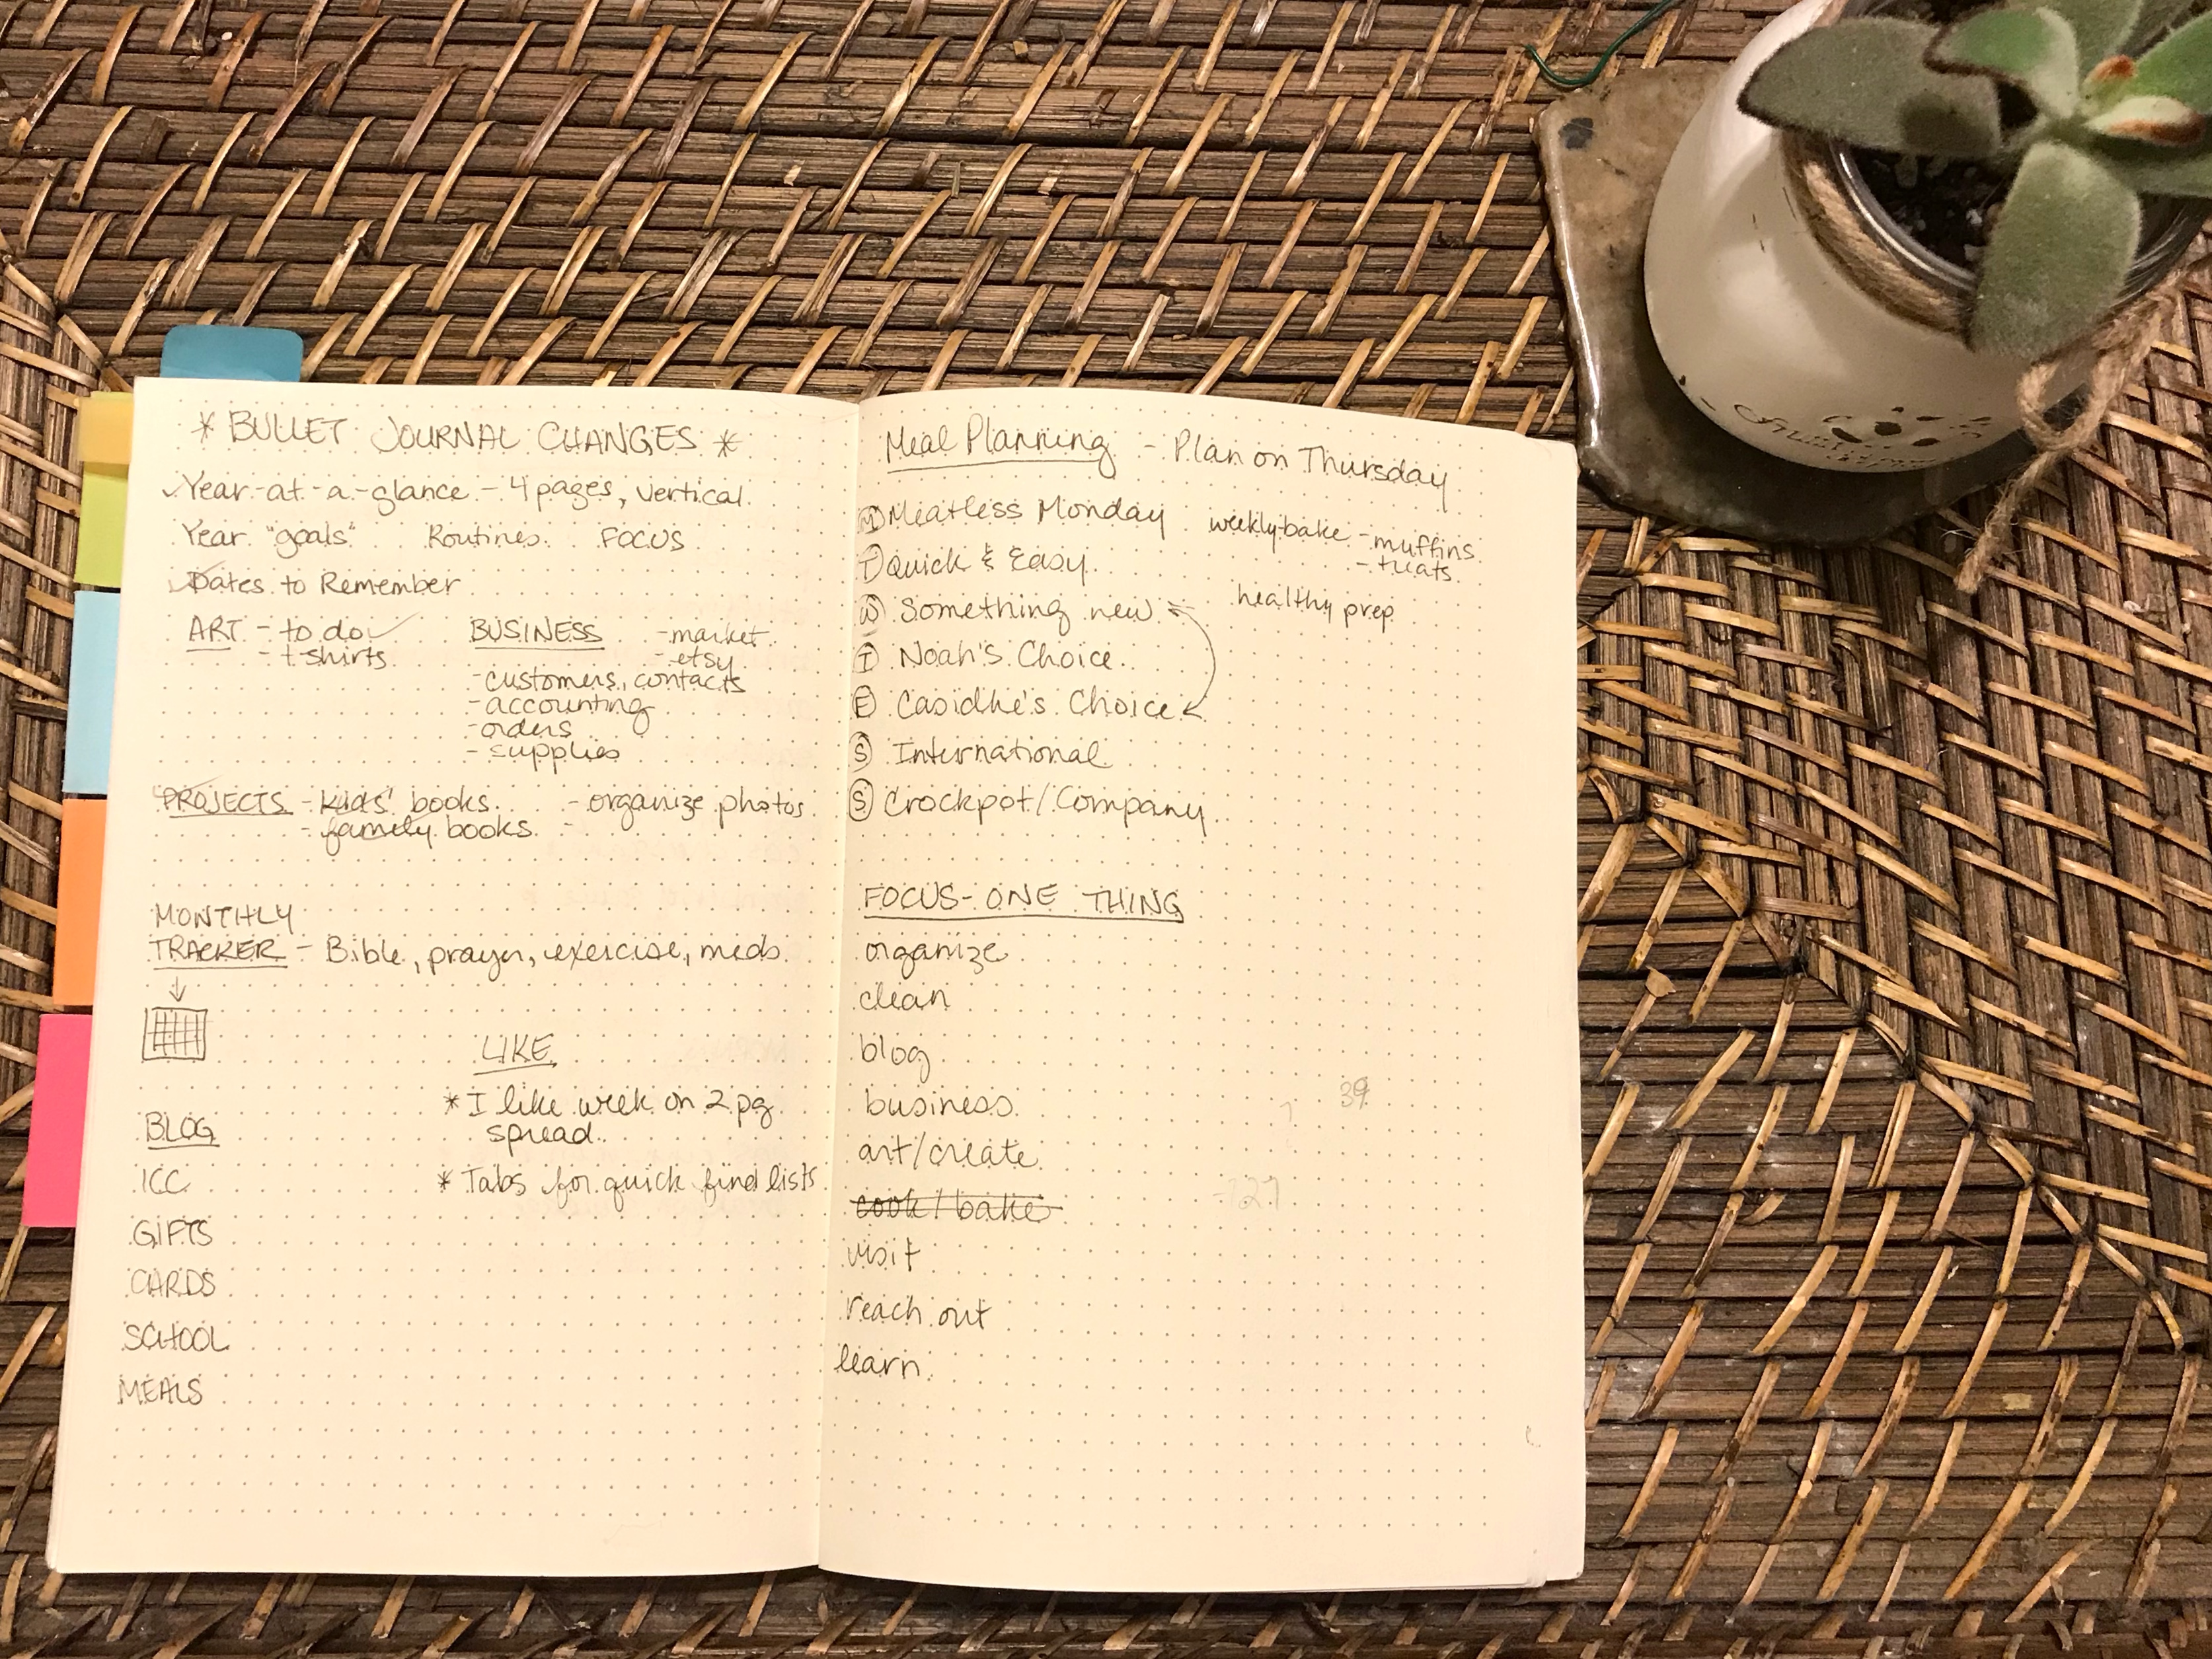 * BULLET JOURNAL CHANGES *
✓Year-at-a-glance - 4 pages, vertical
Year "goals" Routines FOCUS
✓Dates to Remember
ART - to do ✓ BUSINESS - market
- t-shirts - etsy
- customers, contacts
- accounting
- orders
- supplies
PROJECTS - kids' books - organize photos
- family books -
MONTHLY
TRACKER - Bible, prayer, exercise, meds
↓
LIKE
* I like week on 2 pg
spread
* Tabs for quick find lists
BLOG
ICC
GIFTS
CARDS
SCHOOL
MEALS
Meal Planning - Plan on Thursday
M Meatless Monday weekly bake - muffins
T Quick & Easy - treats
W Something new healthy prep
T Noah's Choice
F Casidhe's Choice
S International
S Crockpot/Company
FOCUS - ONE THING
organize
clean
blog
business
39
art/create
cook/bake
-127
visit
reach out
learn